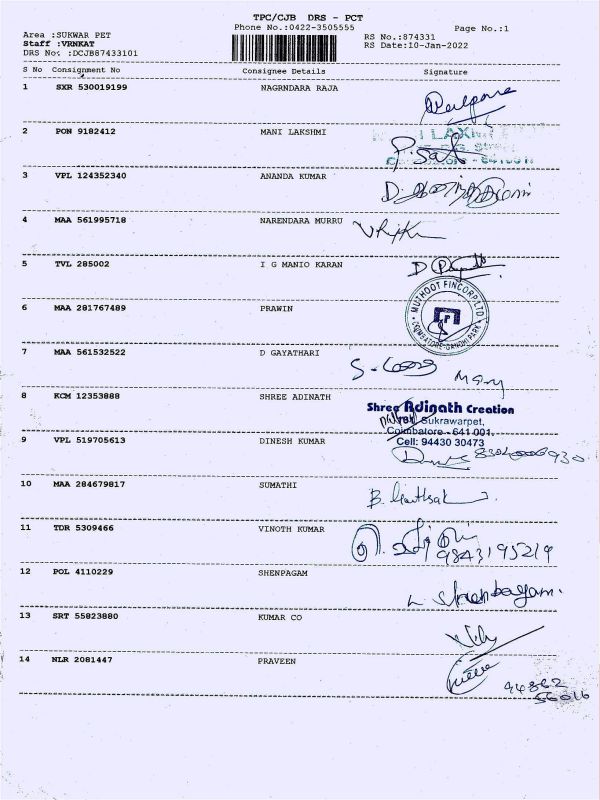 TPC/CJB DRS - PCT
Phone No.:0422-3505555
Page No.:1
Area :SUKWAR PET
RS No.:874331
Staff :VRNKAT
RS Date:10-Jan-2022
DRS No: :DCJB87433101
S No Consignment No Consignee Details Signature
1 SXR 530019199 NAGRNDARA RAJA
2 PON 9182412 MANI LAKSHMI
LAXMI
P. Sak
3 VPL 124352340 ANANDA KUMAR
4 MAA 561995718 NARENDARA MURRU
5 TVL 285002 I G MANIO KARAN
6 MAA 281767489 PRAWIN
MUTHOOT FINCORP LTD
COIMBATORE-GANDHI PARK
7 MAA 561532522 D GAYATHARI
8 KCM 12353888 SHREE ADINATH
Shree Adinath Creation
Sukrawarpet,
Coimbatore - 641 001.
Cell: 94430 30473
9 VPL 519705613 DINESH KUMAR
10 MAA 284679817 SUMATHI
11 TDR 5309466 VINOTH KUMAR
9843195219
12 POL 4110229 SHENPAGAM
Shenbagam.
13 SRT 55823880 KUMAR CO
14 NLR 2081447 PRAVEEN
94862
56016